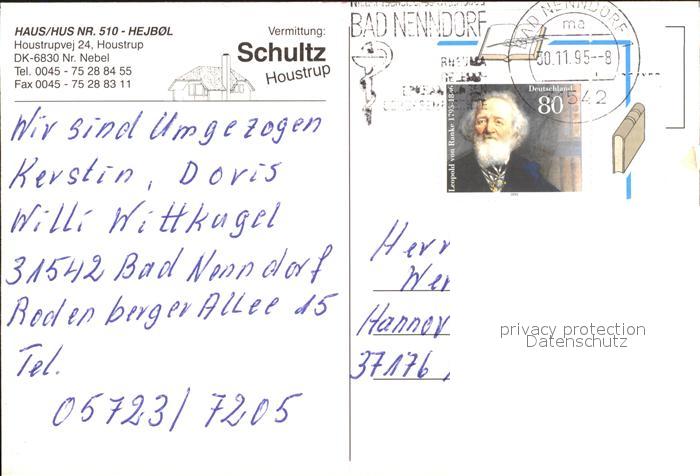 HAUS/HUS NR. 510 - HEJBØL
Houstrupvej 24, Houstrup
DK-6830 Nr. Nebel
Tel. 0045 - 75 28 84 55
Fax 0045 - 75 28 83 11
Vermittung:
Schultz
Houstrup
Wir sind Umgezogen
Kerstin, Doris
Willi Wittkugel
31542 Bad Nenndorf
Rodenberger Allee 15
Tel.
05723/7205
BAD NENNDORF
BAD NENNDORF
ma
30.11.95-8
31542
Deutschland
80
Leopold von Ranke 1795-1886
Herr
Wer
Hannov
37176,
privacy protection
Datenschutz